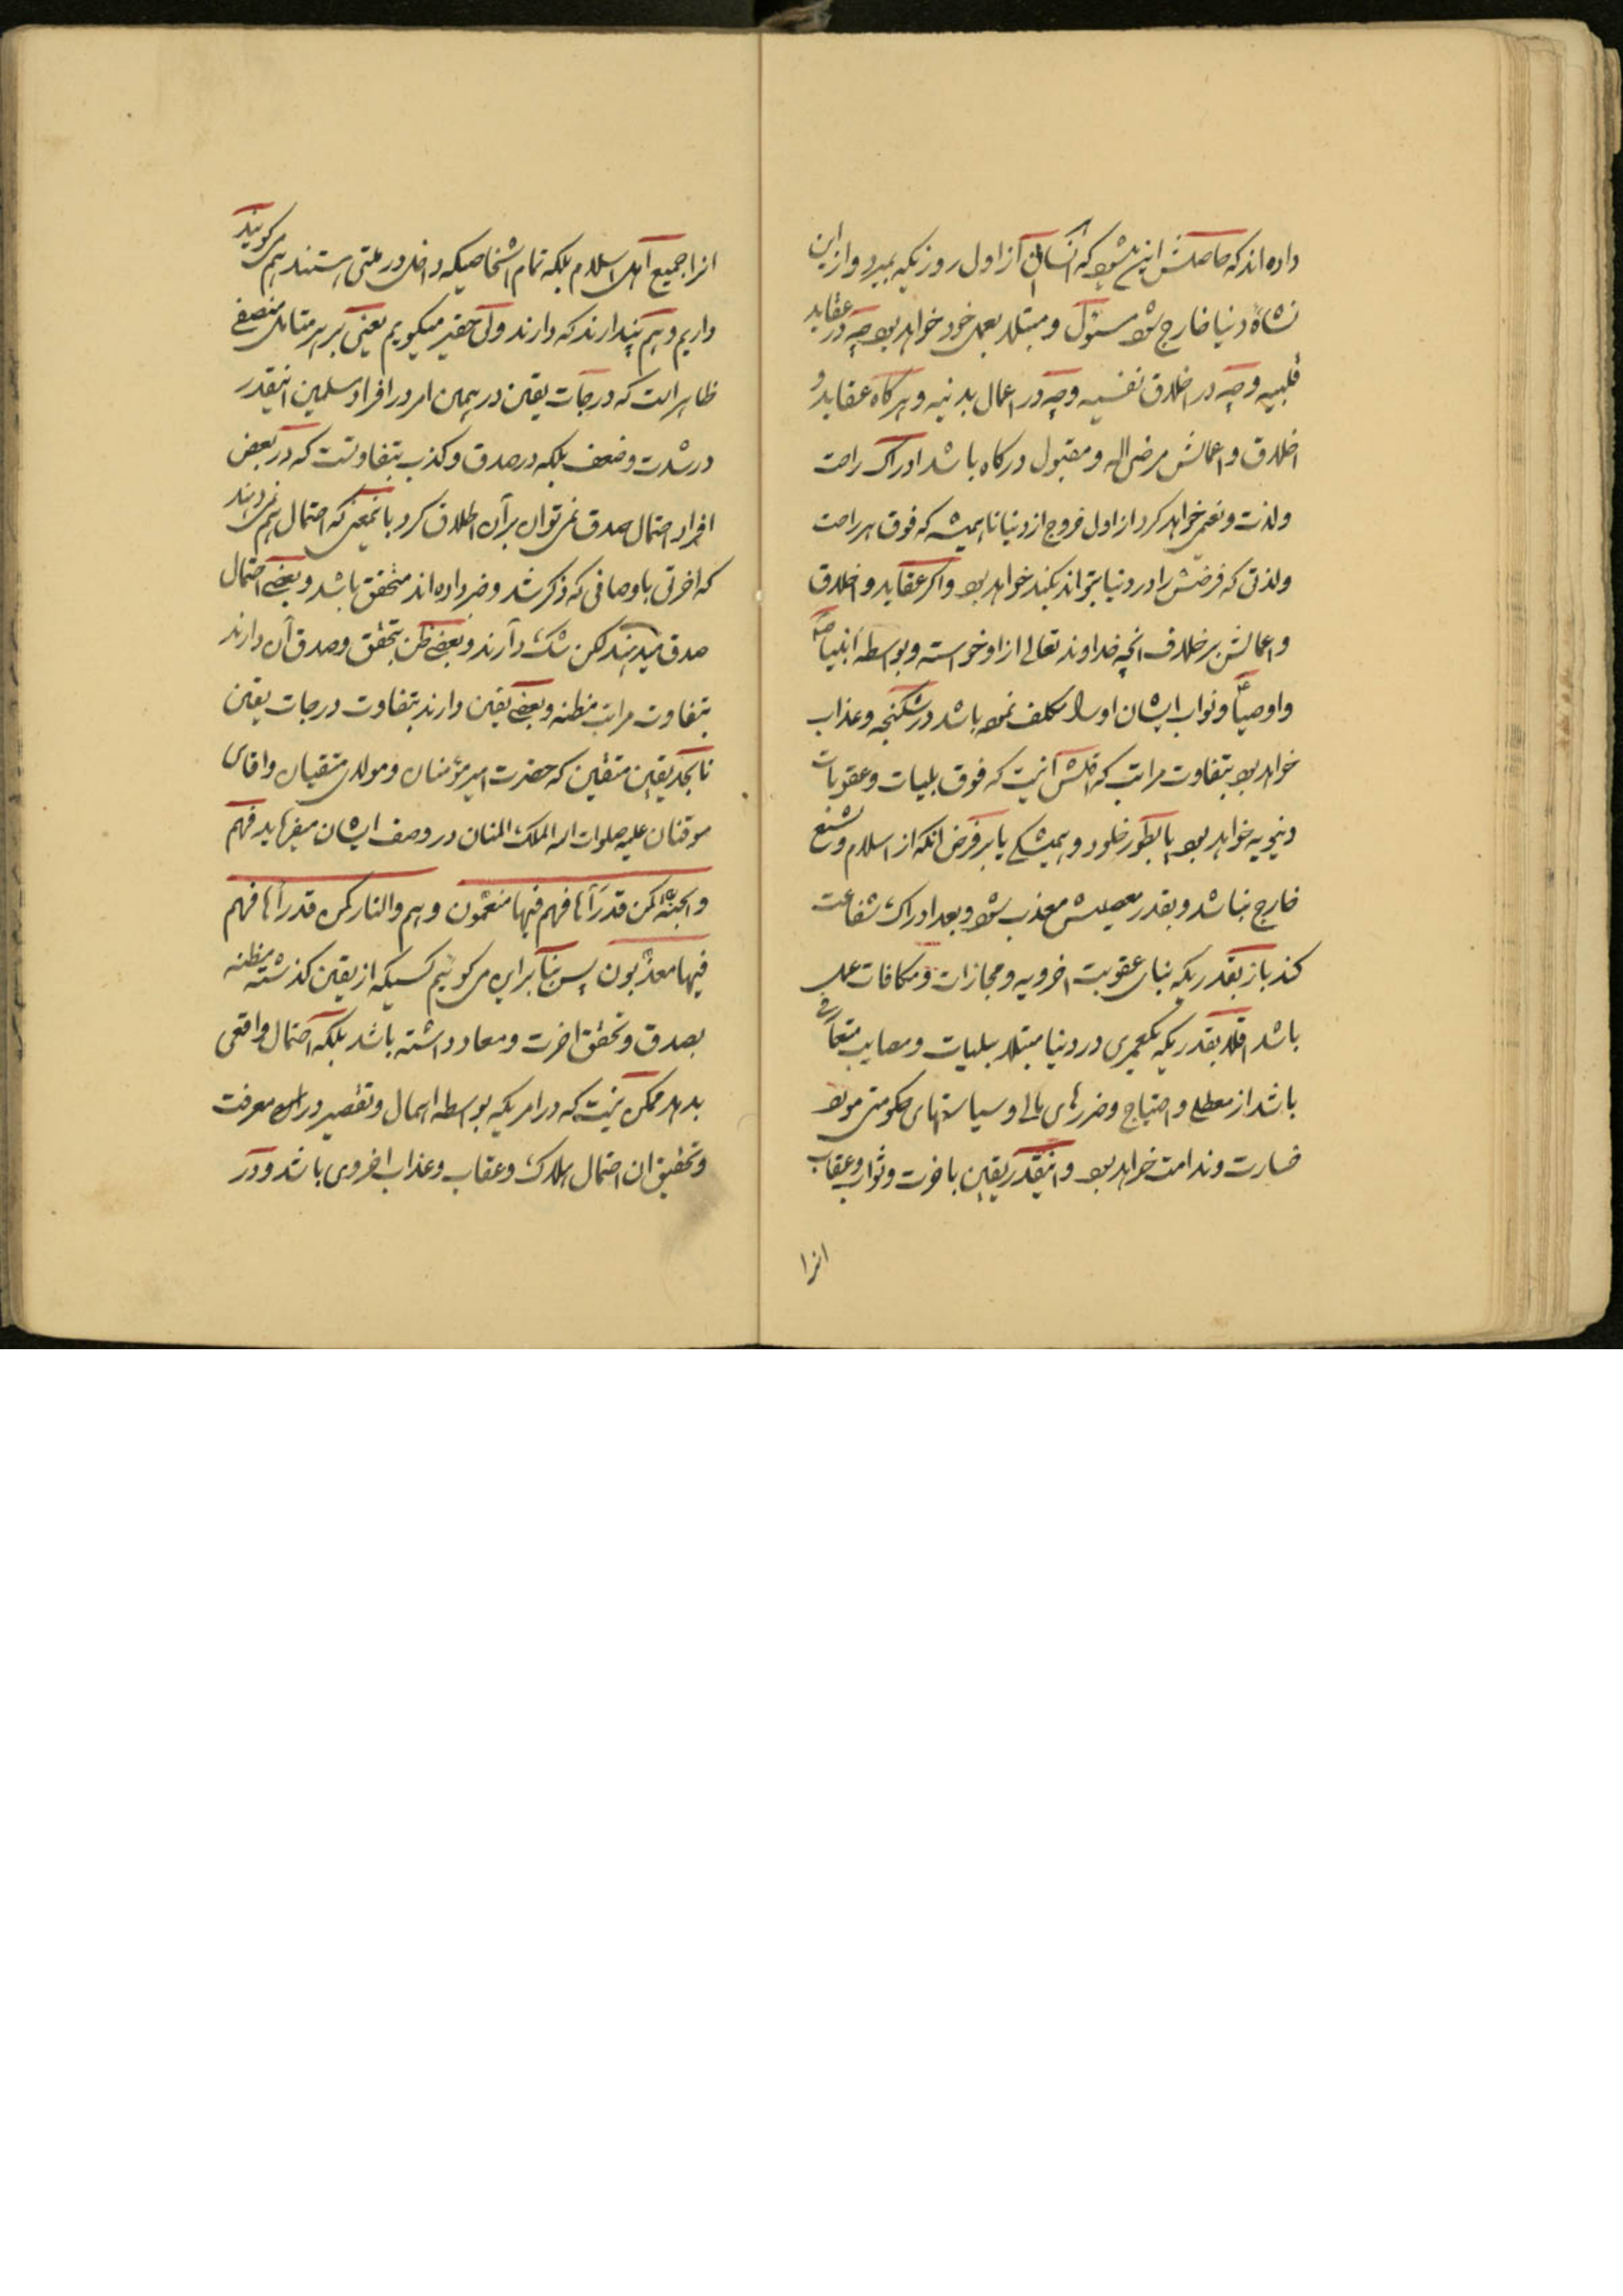 داده اند که حاصلش این میشود که انسان از اول روزیکه بمیرد و از این
نشاه دنیا خارج شود مسئول و مبتلا بعمل خود خواهد بود چه در عقاید
قلبیه و چه در اخلاق نفسیه و چه در اعمال بدنیه و هرکاه عقاید و
اخلاق و اعمالش مرضی اله و مقبول درکاه باشد ادراک راحت
ولذت و نعمی خواهد کرد از اول خروج از دنیا تا همیشه که فوق هر راحت
ولذتی که فرضش را در دنیا بتواند بکند خواهد بود و اکر عقاید و اخلاق
و اعمالش بر خلاف انچه خداوند تعالی از او خواسته و بواسطه انبیا
و اوصیا و نواب ایشان او را مکلف نموده باشد در شکنجه و عذاب
خواهد بود بتفاوت مراتب که اقلش آنیست که فوق بلیات و عقوبات
دنیویه خواهد بود یا بطور خلود و همیشکی یا بر فرض انکه از اسلام و تشیع
خارج نباشد و بقدر معصیتش معذب شود و بعد ادراک شفاعت
کند باز بقدریکه بنای عقوبت اخرویه و مجازات و مکافات عمل
باشد اقلا بقدریکه یکعمری در دنیا مبتلا ببلیات و مصایب متعارفی
باشد از معطلی و احتیاج و ضررهای مالی و سیاستهای حکومتی مورد
خسارت و ندامت خواهد بود و اینقدر یقین باخرت و ثواب و عقاب
انرا
انرا جمیع اهل اسلام بلکه تمام اشخاصیکه داخل در ملتی هستند هم می کویند
داریم و هم پندارند که دارند ولی حقیر میکویم یعنی بر هر متامل منصفی
ظاهر است که درجات یقین در همین امر در افراد مسلمین اینقدر
در شدت و ضعف بلکه در صدق و کذب بتفاوتست که در بعض
افراد احتمال صدق نمی توان بر آن اطلاق کرد باینمعنی که احتمال هم نمی دهند
که اخرتی باوصافی که ذکر شد و خبر داده اند متحقق باشد و بعضی احتمال
صدق میدهند لکن شک دارند و بعضی ظن بتحقق و صدق آن دارند
بتفاوت مراتب مظنه و بعضی یقین دارند بتفاوت درجات یقین
تا بحد یقین متقین که حضرت امیر مؤمنان و مولای متقیان و اقای
موقنان علیه صلوات اله الملک المنان در وصف ایشان میفرماید فهم
والجنة کمن قد رآها فهم فیها منعمون و هم والنار کمن قد رآها فهم
فیها معذبون پس بنا بر این می کوئیم کسیکه از یقین کذشته مظنه
بصدق و تحقق اخرت و معاد داشته باشد بلکه احتمال واقعی
بدهد ممکن نیست که در امریکه بواسطه اهمال و تقصیر در معرفت
و تحقیق ان احتمال هلاکت و عقاب و عذاب اخروی باشد و در